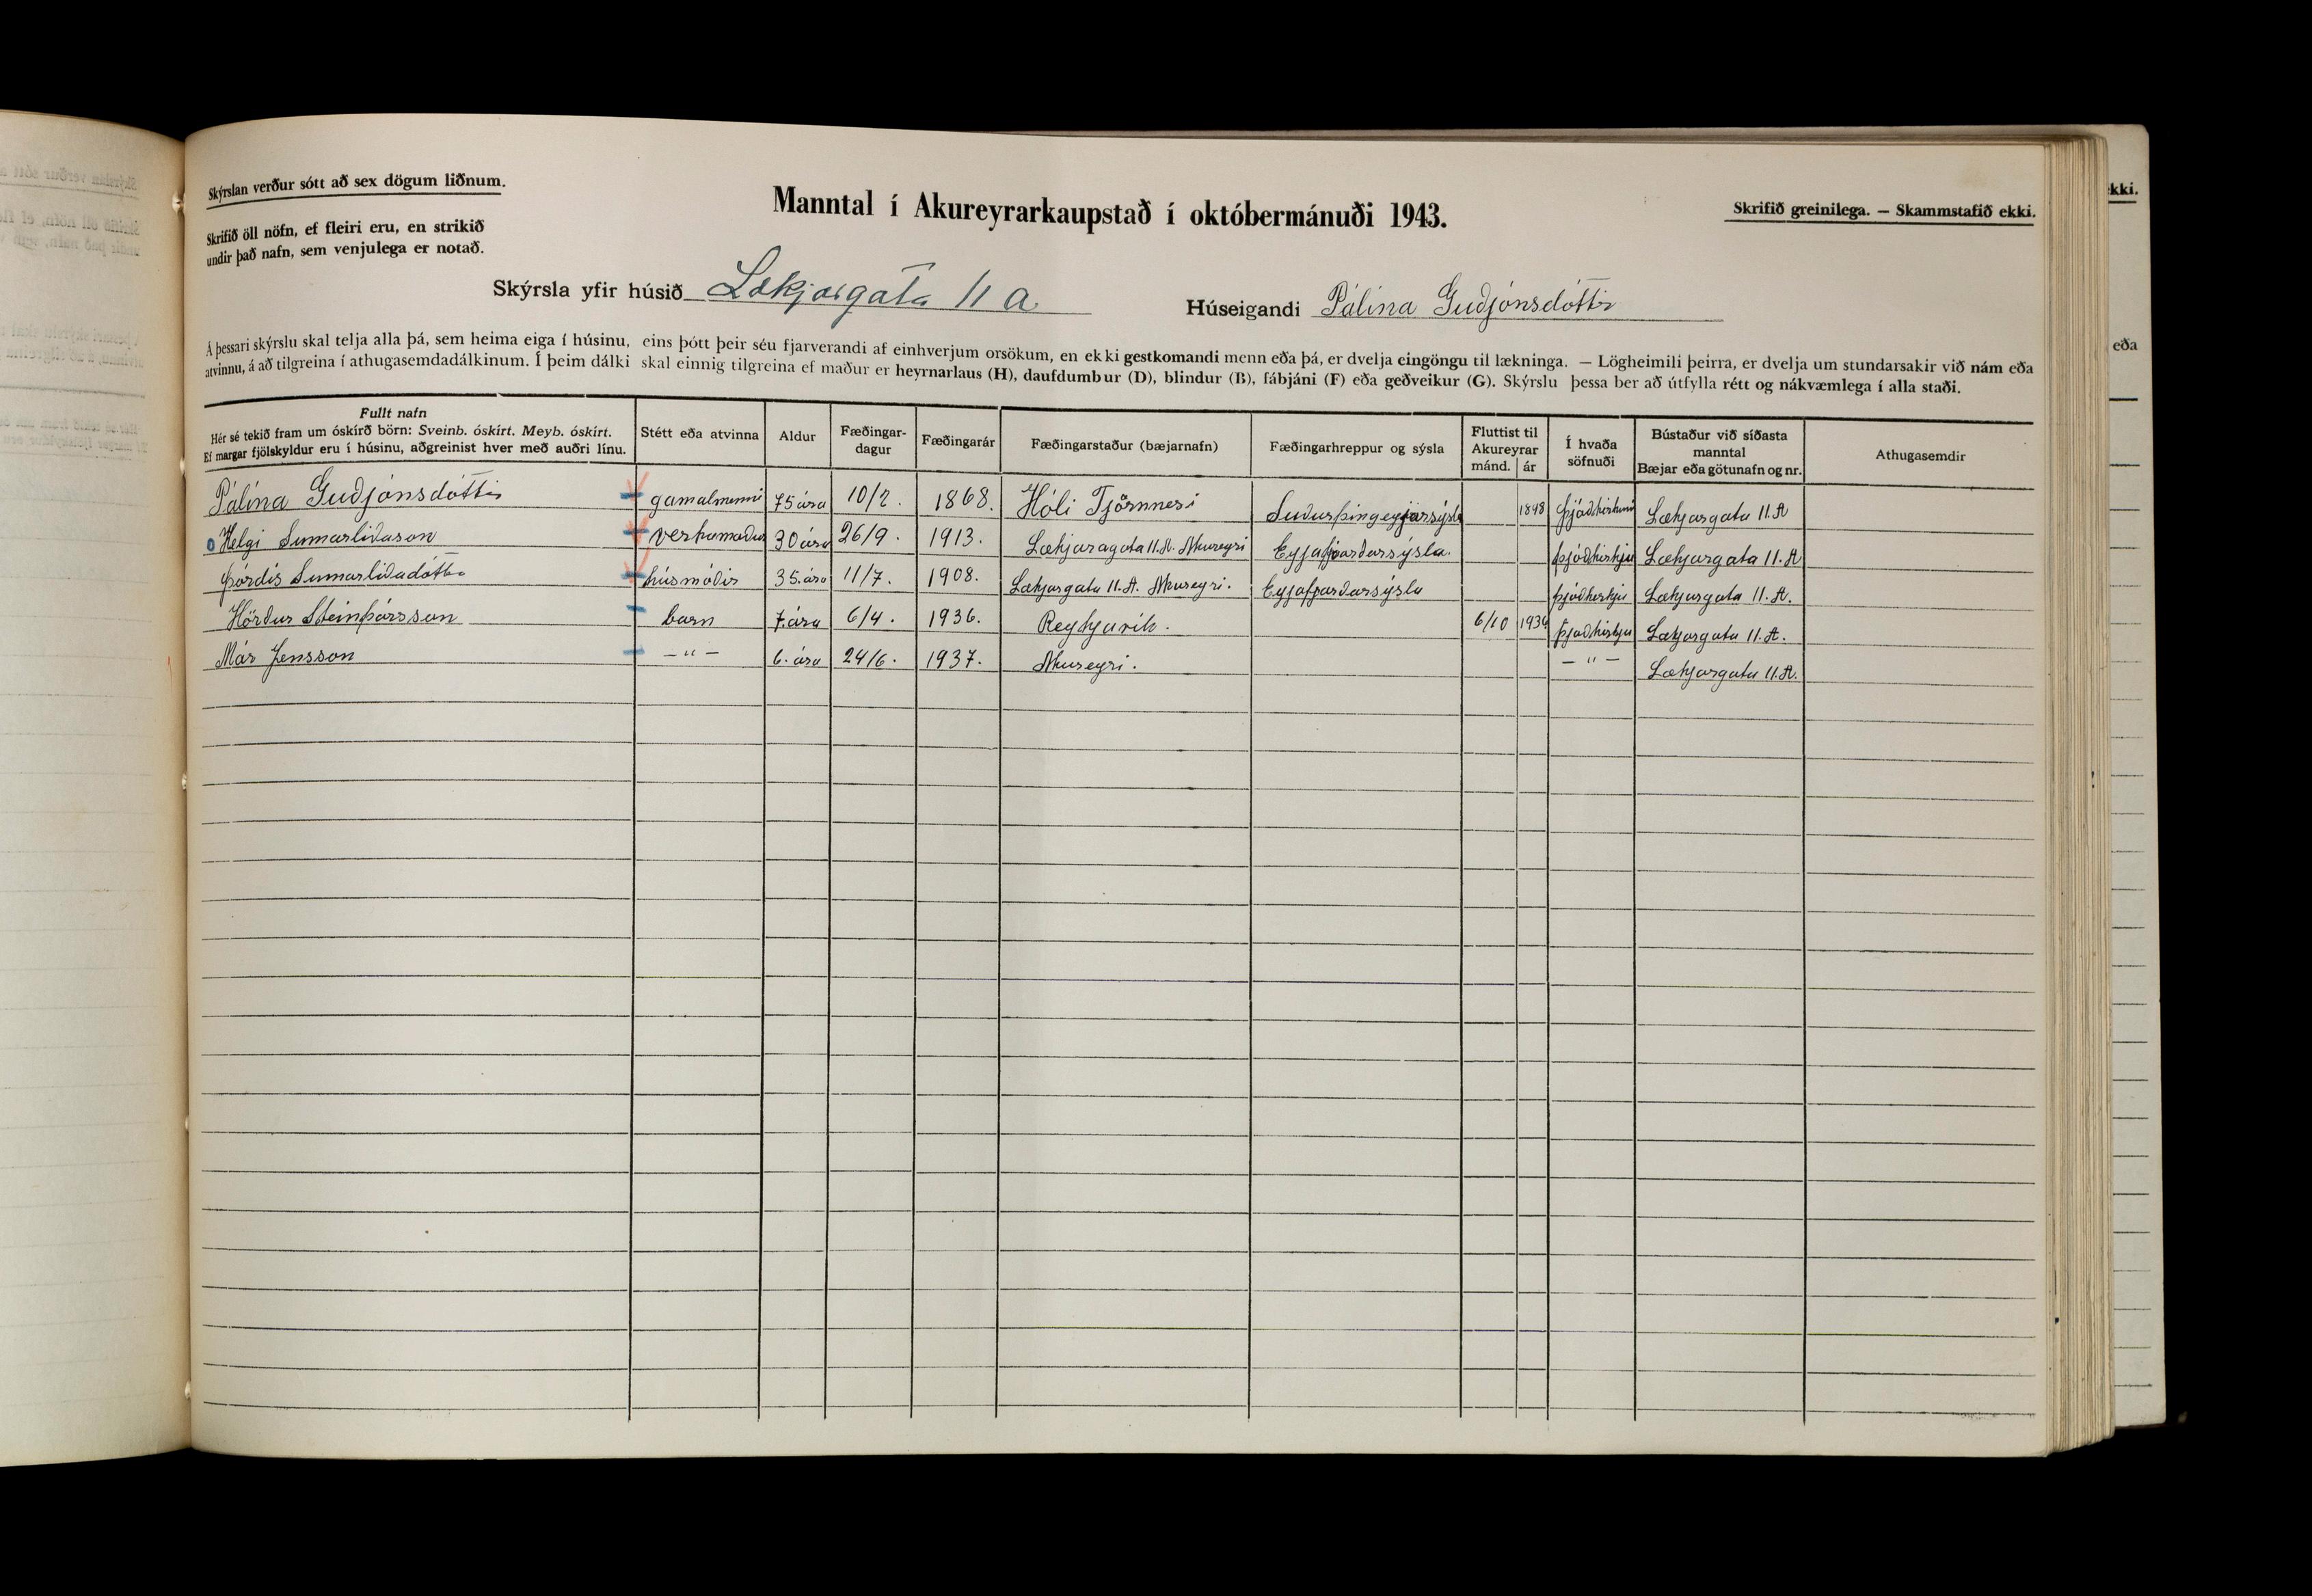 Skýrslan verður sótt að sex dögum liðnum.
Skrifið öll nöfn, ef fleiri eru, en strikið
undir það nafn, sem venjulega er notað.
Manntal í Akureyrarkaupstað í októbermánuði 1943.
Skrifið greinilega. — Skammstafið ekki.
Skýrsla yfir húsið Lækjargata 11 a
Húseigandi Pálína Gudjónsdóttir
Á þessari skýrslu skal telja alla þá, sem heima eiga í húsinu, eins þótt þeir séu fjarverandi af einhverjum orsökum, en ekki gestkomandi menn eða þá, er dvelja eingöngu til lækninga. — Lögheimili þeirra, er dvelja um stundarsakir við nám eða
atvinnu, á að tilgreina í athugasemdadálkinum. Í þeim dálki skal einnig tilgreina ef maður er heyrnarlaus (H), daufdumbur (D), blindur (B), fábjáni (F) eða geðveikur (G). Skýrslu þessa ber að útfylla rétt og nákvæmlega í alla staði.
Fullt nafn
Hér sé tekið fram um óskírð börn: Sveinb. óskírt. Meyb. óskírt.
Ef margar fjölskyldur eru í húsinu, aðgreinist hver með auðri línu.
Stétt eða atvinna
Aldur
Fæðingar-
dagur
Fæðingarár
Fæðingarstaður (bæjarnafn)
Fæðingarhreppur og sýsla
Fluttist til
Akureyrar
mánd. ár
Í hvaða
söfnuði
Bústaður við síðasta
manntal
Bæjar eða götunafn og nr.
Athugasemdir
Pálína Gudjónsdóttir gamalmenni 75 ára 10/2. 1868. Hóli Tjörnnesi Sudurþingeyjarsýsla 1848 Lækjargata 11.A
Helgi Sumarlidason verkamadur 30 ára 26/9. 1913. Lækjaragata 11.A. Akureyri Eyjafjardarsýsla. þjódkirkju Lækjargata 11.A
Þórdís Sumarlidadóttir húsmódir 35.ára 11/7. 1908. Lækjargata 11.A. Akureyri. Eyjafjardarsýsla þjódkirkju Lækjargata 11.A.
Hördur Steinþórsson barn 7.ára 6/4. 1936. Reykjavík. 6/10 1936 þjódkirkju Lækjargata 11.A.
Már Jensson — " — 6. ára 24/6. 1937. Akureyri. — " — Lækjargata 11.A.
ekki.
eða